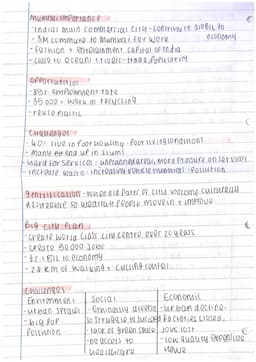 Mumbai importance
- Indias main commercial city - contribute $10bil to economy
- 5M commute to mumbai for work
- Fashion + Entertainment capital of India
- close to oceans + rivers - trade, popularity
Opportunities
- 85% employment rate
- 35 000 + work in recycling
- reuse plastic
Challenges
- 40% live in poor housing - Poor living conditions
- Many end up in slums
- Hard for services - unplanned areas, more pressure on services
- Increase waste - increasing vehicle numbers - Pollution
Gentrification - When old parts of city become culturally
desireable so wealthy people move in + improve
Big city Plan
- Create world class city centre over 20 years
- Create 50,000 jobs
- £2.1 Bil to economy
- 24 km of walking + cycling routes
Challenges
Environment | Social | Economic
- urban sprawl | - Ethnically diverse | - urban decline.
- big pop. | so struggle to build | Facilities closed,
Pollution | - lack of green space | jobs lost
- no access to | - low quality expensive
healthcare | house